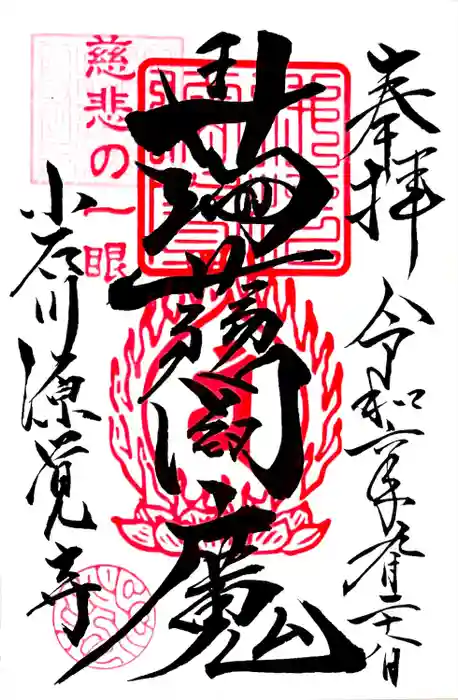 奉拝
令和六年九月
蒟蒻閻魔
慈悲の一眼
小石川源覚寺